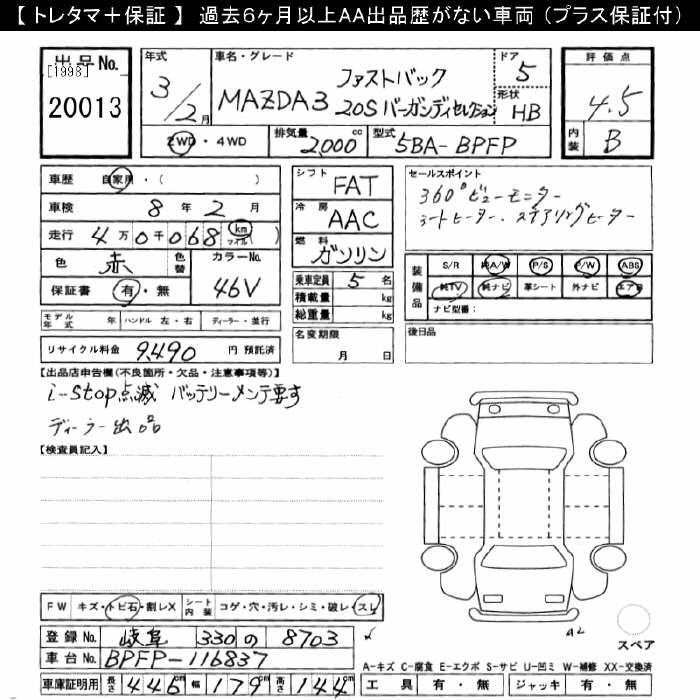 【 トレタマ＋保証 】 過去6ヶ月以上AA出品歴がない車両 (プラス保証付)
出品No. [1998] 20013
年式 3/2月
車名・グレード MAZDA3 ファストバック 20S バーガンディセレクション
ドア 5
形状 HB
評価点 4.5
内装 B
2WD・4WD
排気量 2,000 cc
型式 5BA-BPFP
車歴 自家用・( )
車検 8年 2月
走行 4万0千068 km マイル( )
色 赤 色替
カラーNo. 46V
保証書 有・無
モデル年式 年 ハンドル 左・右 ディーラー・並行
リサイクル料金 9,490 円 預託済
シフト FAT
冷房 AAC
燃料 ガソリン
乗車定員 5 名
積載量 kg
総重量 kg
名変期限 月 日
セールスポイント
360°ビューモニター
シートヒーター、ステアリングヒーター
装備品 S/R 純A/W P/S P/W ABS
純TV 純ナビ 革シート 外ナビ エアB
ナビ型番:
後日品
【出品店申告欄(不良箇所・欠品・注意事項等)】
i-stop点滅 バッテリーメンテ要す
ディーラー出品
【検査員記入】
FW キズ・トビ石・割レX シート内装 コゲ・穴・汚レ・シミ・破レ・スレ
登録No. 岐阜 330 の 8703
車台No. BPFP-116837
車庫証明用 長さ 446cm 幅 179cm 高さ 144cm
AL
スペア
A-キズ C-腐食 E-エクボ S-サビ U-凹ミ W-補修 XX-交換済
工具 有・無 ジャッキ 有・無